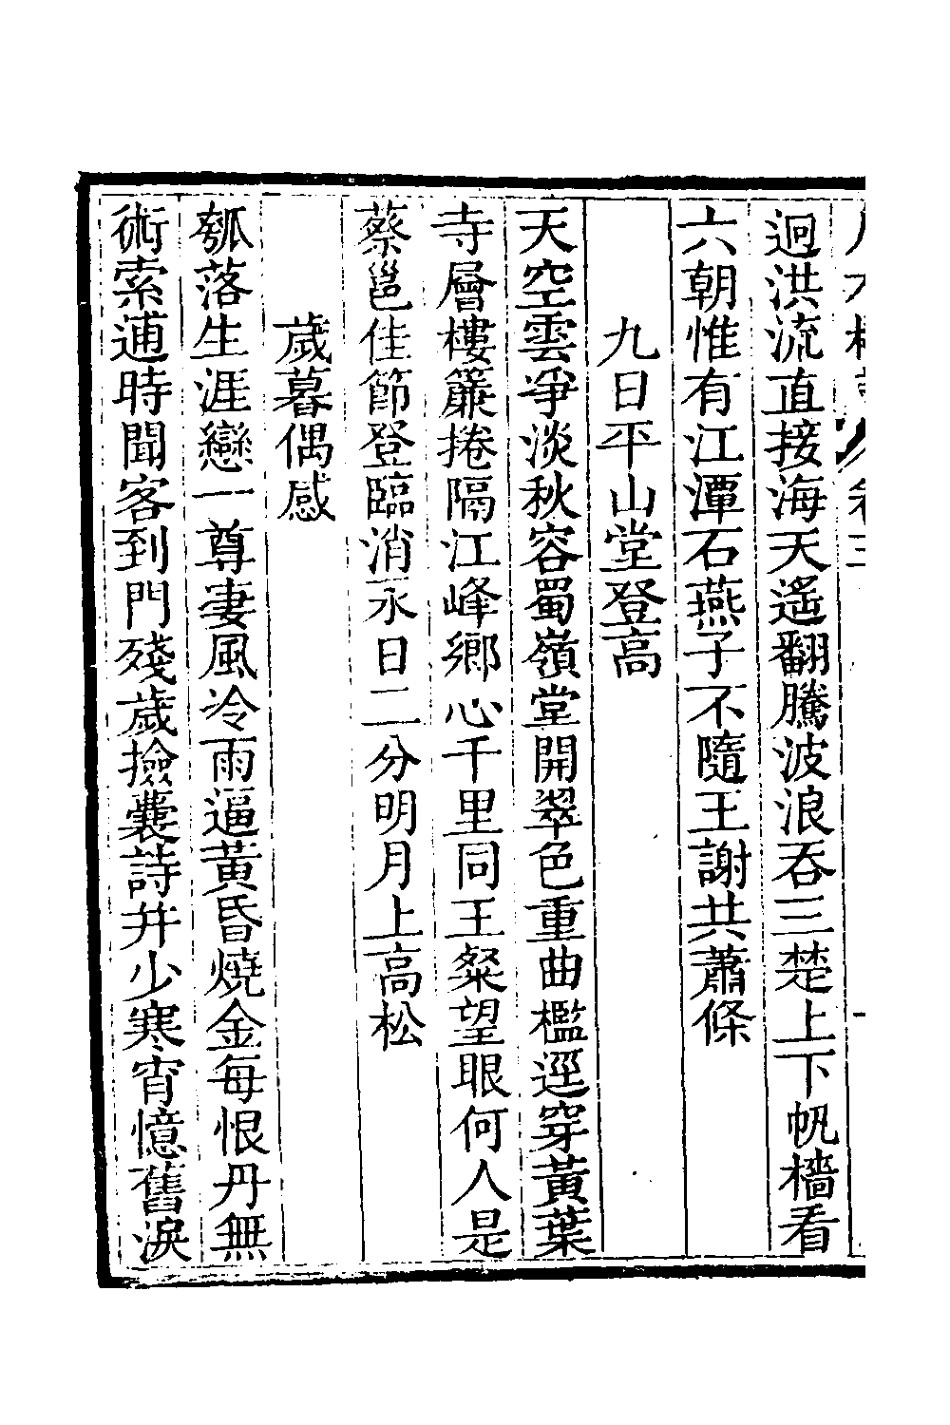 迥洪流直接海天遙翻騰波浪吞三楚上下帆檣看
六朝惟有江潭石燕子不隨王謝共蕭條
九日平山堂登高
天空雲凈淡秋容蜀嶺堂開翠色重曲檻逕穿黃葉
寺層樓簾捲隔江峰鄉心千里同王粲望眼何人是
蔡邕佳節登臨消永日二分明月上高松
歲暮偶感
瓠落生涯戀一尊妻風冷雨逼黃昏燒金每恨丹無
術索逋時聞客到門殘歲撿囊詩幷少寒宵憶舊淚